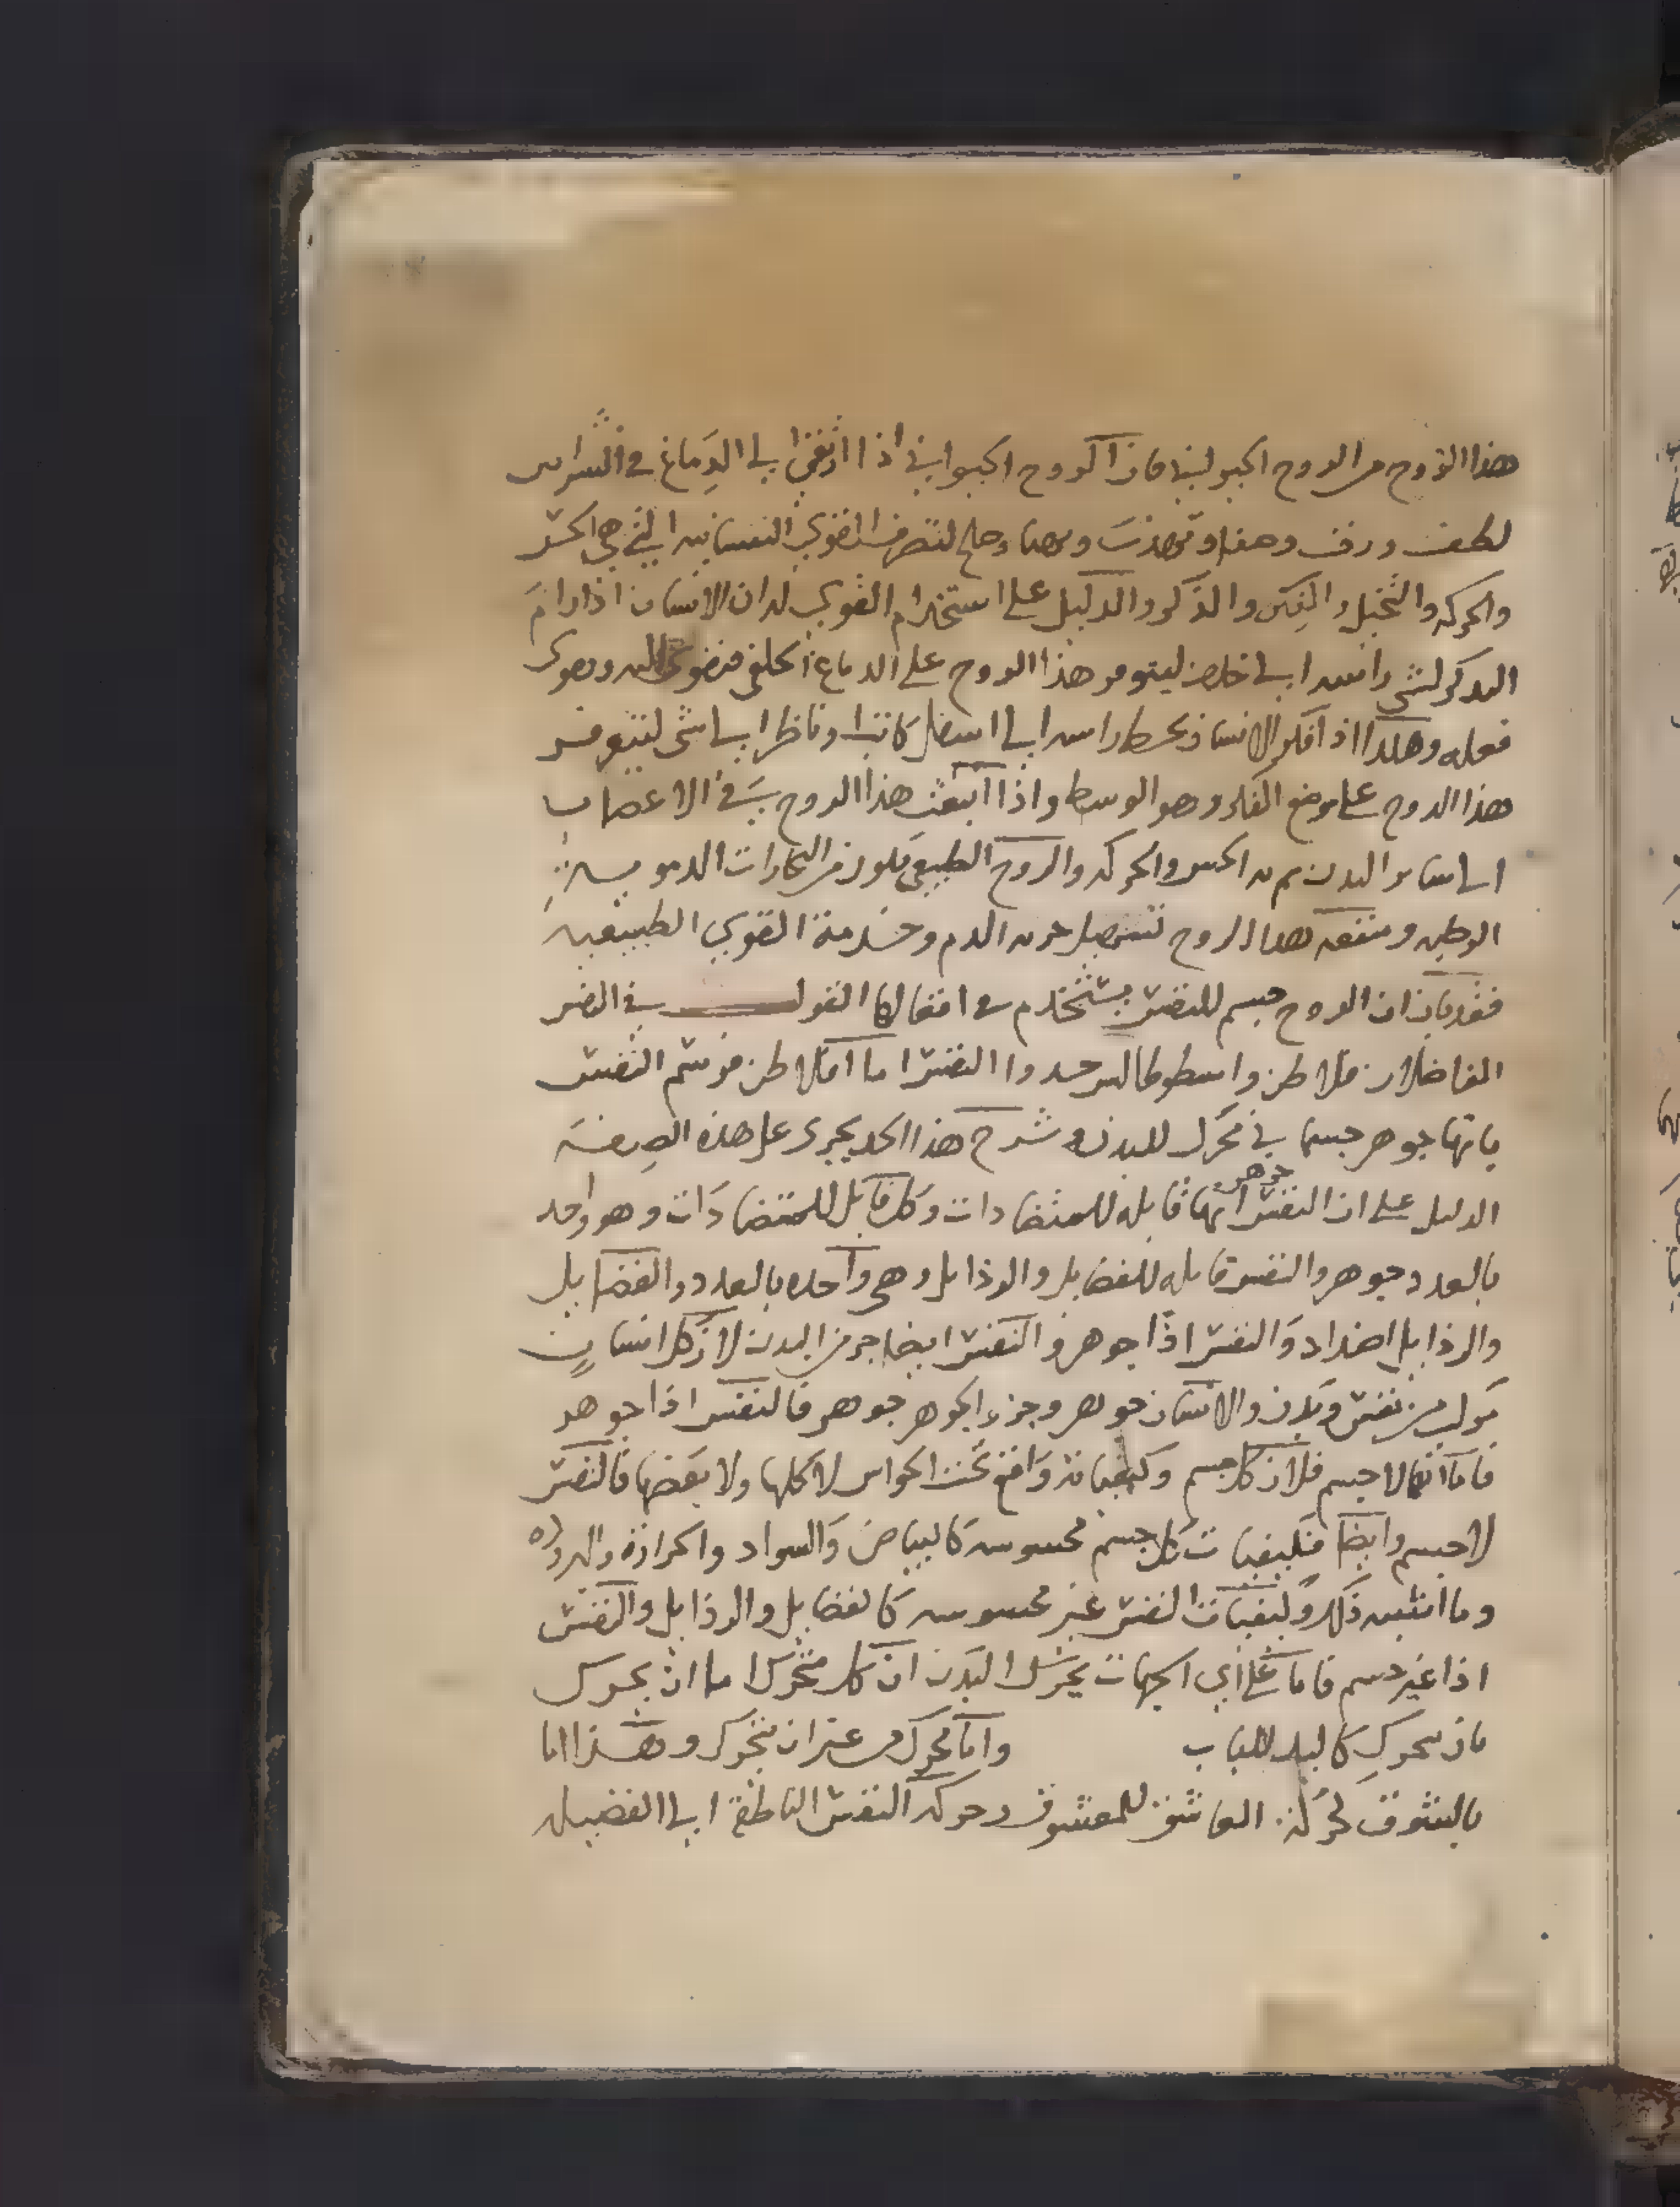 هذا الروح من الروح الحيوانية فان الروح الحيواني اذا ارتقي الي الدماغ في الشراين
لطف ورق وصفا وتهذب وتهيا وصلح لتصرف القوي النفسانيه التي هي الحس
والحركه والتخيل والفكر والذكر والدليل علي استخدام القوي له ان الانسان اذا رام
التذكر لشي راسه الي خلف ليتوفر هذا الروح علي الدماغ الخلفي فتضوي اليه ويقوي
فعله وهكذا اذا فكر الانسان يحط راسه الي اسفل كاتبا وناظرا الي شي ليتوفر
هذا الروح علي موضع الفكر وهو الوسط واذا انبعث هذا الروح في الاعصاب
الي ساير البدن تم به الحس والحركه والروح الطبيعي تكون من البخارات الدمويه
الرطبه ومنفعه هذا الروح تسهيل جريه الدم وخدمة القوي الطبيعيه
فقد بان ان الروح جسم للنفس يستخدم في افعالها القول في النفس
الفاضلان فلاطن وارسطوطاليس حدوا النفس اما افلاطن فرسم النفس
بانها جوهر جسماني محرك للبدن وشرح هذا الحد يجري علي هذه الصفة
الدليل علي ان النفس جوهر انها قابله للمتضادات وكل قابل للمتضادات وهو واحد
بالعدد جوهر والنفس قابله للفضايل والرذايل وهي واحده بالعدد والفضايل
والرذايل اضداد والنفس اذا جوهر والنفس ايضا جز من البدن لان كل انسان
مركب من نفس وبدن والانسان جوهر وجزء الجوهر جوهر فالنفس اذا جوهر
فاما انها لا جسم فلان كل جسم وكيفياته واقع تحت الحواس لا كلها ولا بعضها فالنفس
لا جسم وايضا فكيفيات كل جسم محسوسه كالبياض والسواد والحرارة والبروده
وما اشبه ذلك وكيفيات النفس غير محسوسه كالفضايل والرذايل والنفس
اذا غير جسم فاما علي اي الجهات يحرك البدن ان كل متحرك اما ان يحرك
بان يتحرك كاليد للباب واما محرك من غير ان يتحرك وهذا اما
بالشوق كحركة العاشق للمعشوق وحركه النفس الناطقة الي الفضيله